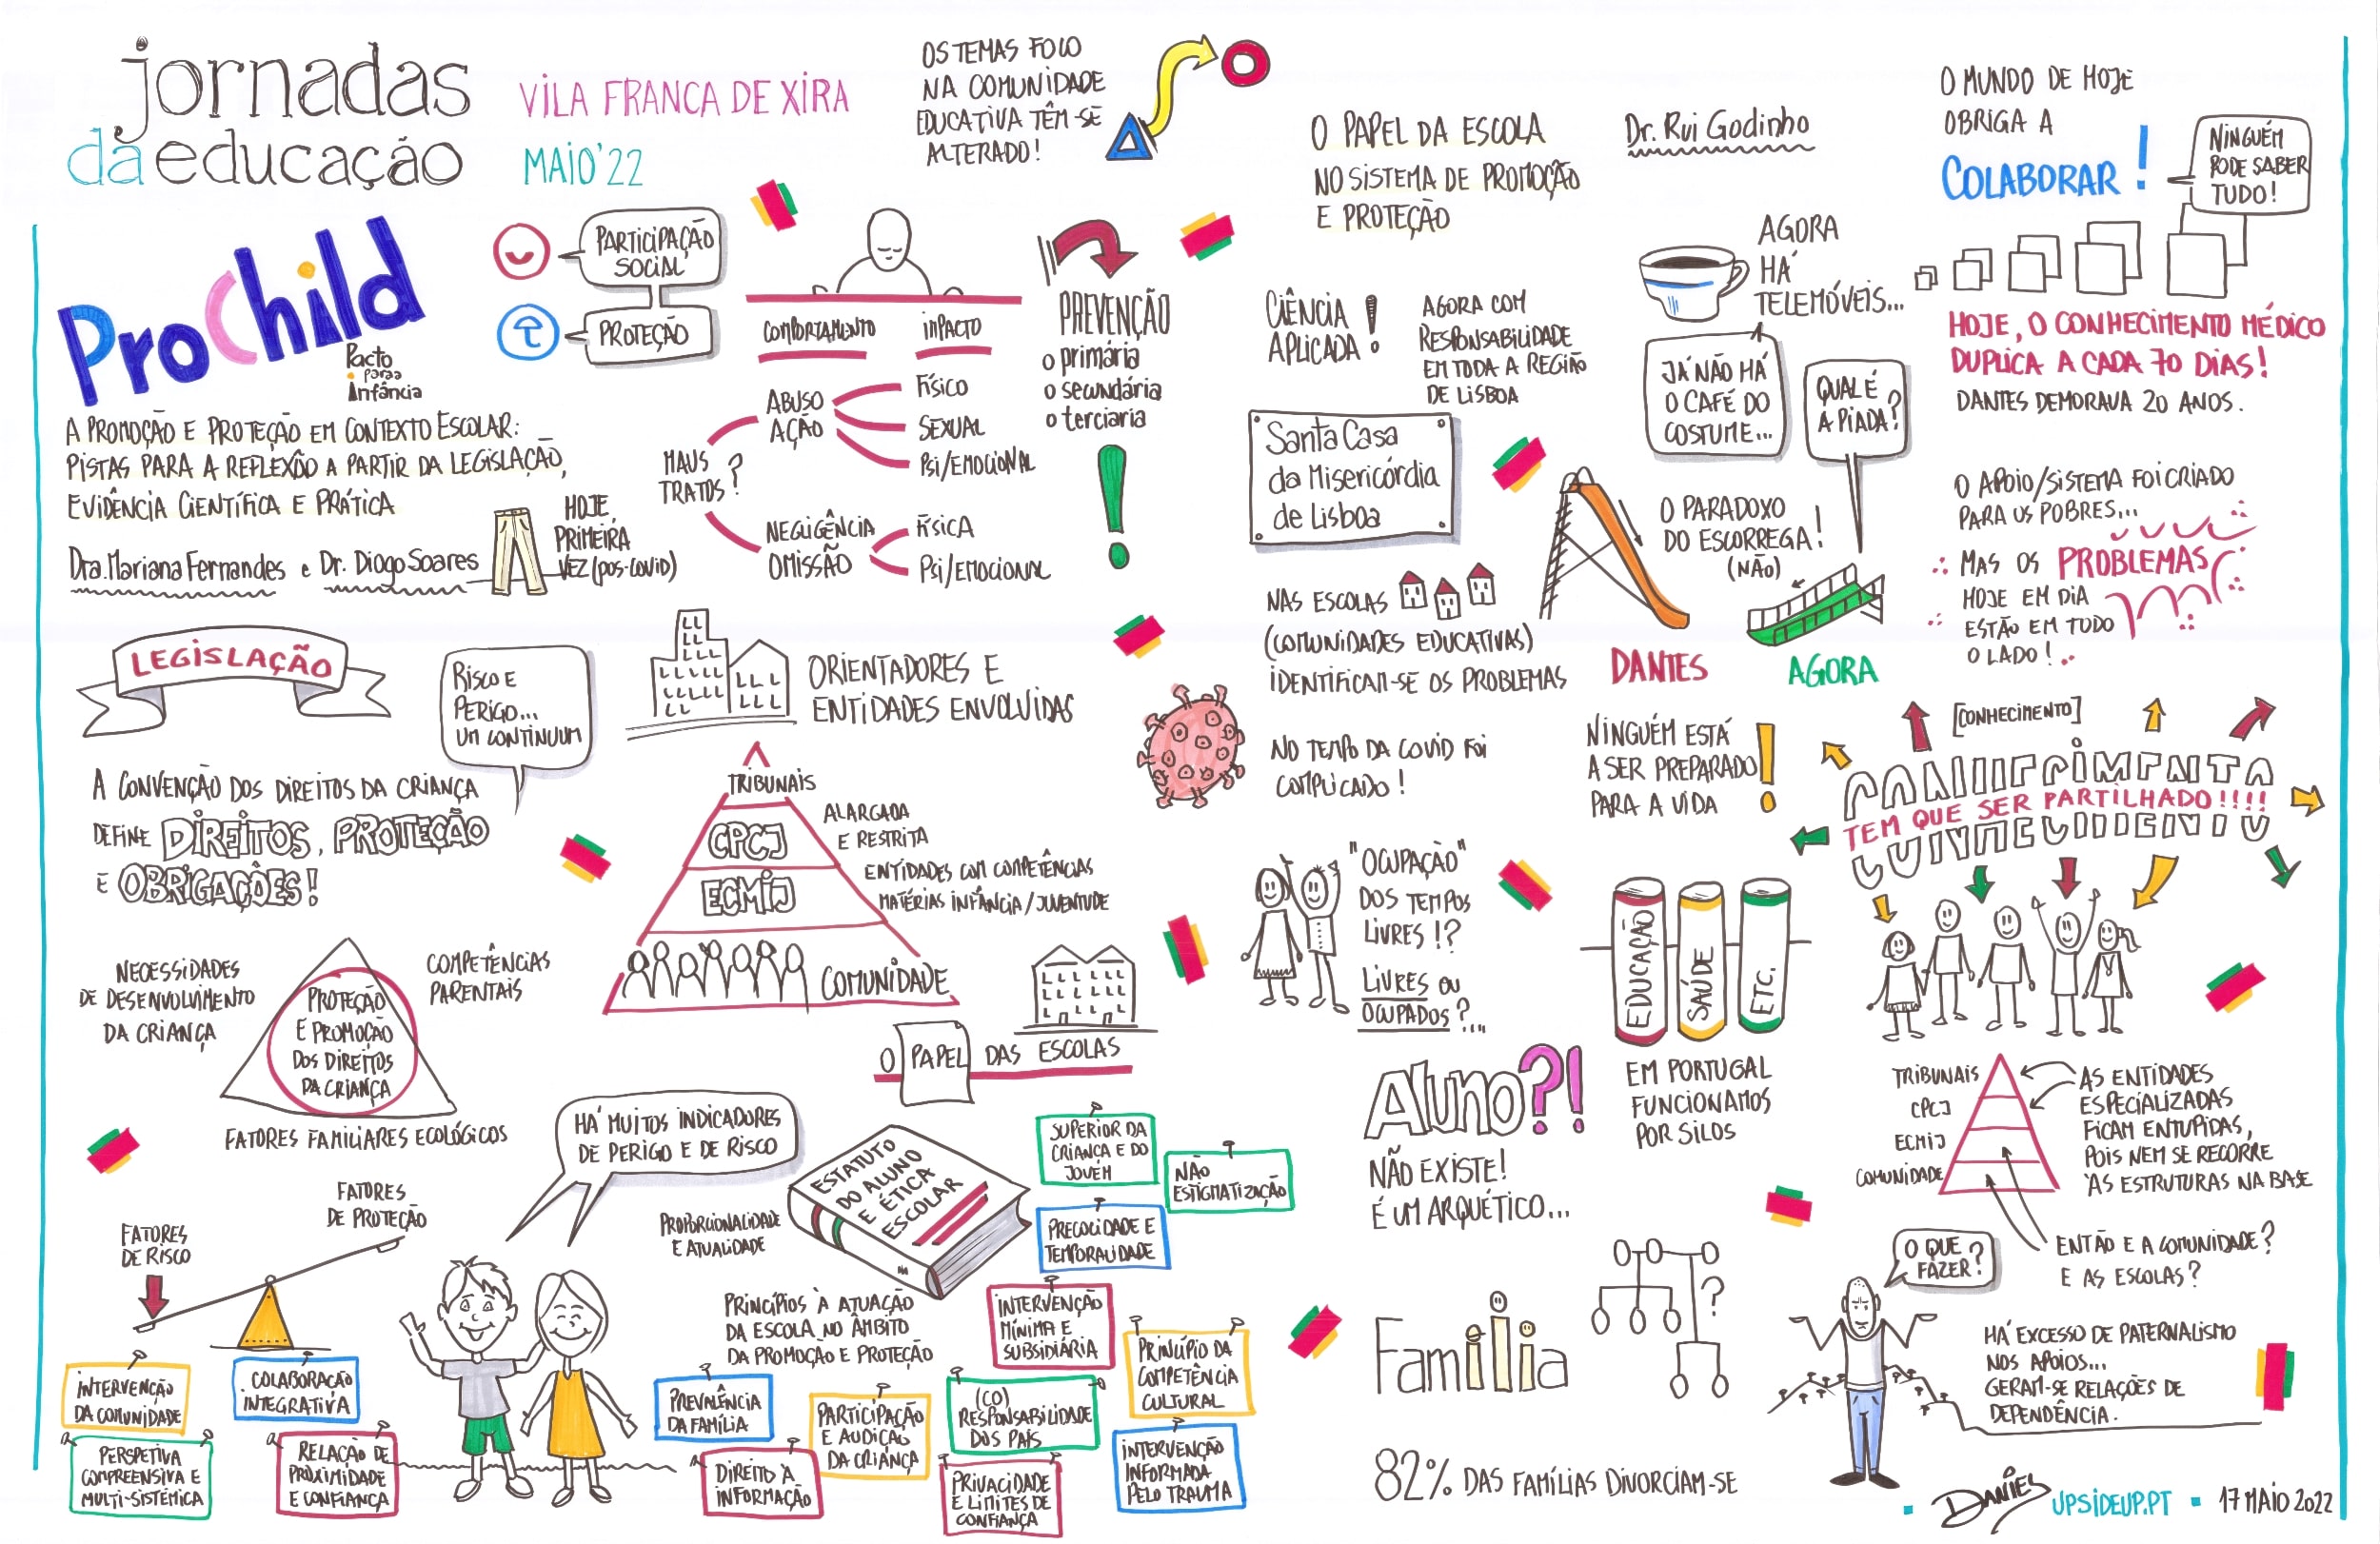 jornadas
da educação
VILA FRANCA DE XIRA
MAIO'22
OS TEMAS FOCO
NA COMUNIDADE
EDUCATIVA TÊM-SE
ALTERADO!
ProChild
Pacto
para a
Infância
A PROMOÇÃO E PROTEÇÃO EM CONTEXTO ESCOLAR:
PISTAS PARA A REFLEXÃO A PARTIR DA LEGISLAÇÃO,
EVIDÊNCIA CIENTÍFICA E PRÁTICA
Dra. Mariana Fernandes e Dr. Diogo Soares
HOJE,
PRIMEIRA
VEZ (POS-COVID)
PARTICIPAÇÃO
SOCIAL
PROTEÇÃO
COMPORTAMENTO
IMPACTO
MAUS
TRATOS?
ABUSO
AÇÃO
FÍSICO
SEXUAL
PSI/EMOCIONAL
NEGLIGÊNCIA
OMISSÃO
FÍSICA
PSI/EMOCIONAL
PREVENÇÃO
o primária
o secundária
o terciaria
!
LEGISLAÇÃO
RISCO E
PERIGO...
UM CONTINUUM
A CONVENÇÃO DOS DIREITOS DA CRIANÇA
DEFINE DIREITOS, PROTEÇÃO
E OBRIGAÇÕES!
NECESSIDADES
DE DESENVOLVIMENTO
DA CRIANÇA
COMPETÊNCIAS
PARENTAIS
PROTEÇÃO
E PROMOÇÃO
DOS DIREITOS
DA CRIANÇA
FATORES FAMILIARES ECOLÓGICOS
ORIENTADORES E
ENTIDADES ENVOLVIDAS
TRIBUNAIS
CPCJ
ALARGADA
E RESTRITA
ECMIJ
ENTIDADES COM COMPETÊNCIAS
MATÉRIAS INFÂNCIA/JUVENTUDE
COMUNIDADE
O PAPEL DAS ESCOLAS
FATORES
DE RISCO
FATORES
DE PROTEÇÃO
INTERVENÇÃO
DA COMUNIDADE
COLABORAÇÃO
INTEGRATIVA
PERSPETIVA
COMPREENSIVA E
MULTI-SISTÉMICA
RELAÇÃO DE
PROXIMIDADE
E CONFIANÇA
HÁ MUITOS INDICADORES
DE PERIGO E DE RISCO
PROPORCIONALIDADE
E ATUALIDADE
ESTATUTO
DO ALUNO
E ÉTICA
ESCOLAR
PRINCÍPIOS À ATUAÇÃO
DA ESCOLA NO ÂMBITO
DA PROMOÇÃO E PROTEÇÃO
SUPERIOR DA
CRIANÇA E DO
JOVEM
NÃO
ESTIGMATIZAÇÃO
PRECOCIDADE E
TEMPORALIDADE
INTERVENÇÃO
MÍNIMA E
SUBSIDIÁRIA
PRINCÍPIO DA
COMPETÊNCIA
CULTURAL
PREVALÊNCIA
DA FAMÍLIA
PARTICIPAÇÃO
E AUDIÇÃO
DA CRIANÇA
(CO)
RESPONSABILIDADE
DOS PAIS
DIREITO À
INFORMAÇÃO
PRIVACIDADE
E LIMITES DE
CONFIANÇA
INTERVENÇÃO
INFORMADA
PELO TRAUMA
O PAPEL DA ESCOLA
NO SISTEMA DE PROMOÇÃO
E PROTEÇÃO
Dr. Rui Godinho
CIÊNCIA
APLICADA!
AGORA COM
RESPONSABILIDADE
EM TODA A REGIÃO
DE LISBOA
Santa Casa
da Misericórdia
de Lisboa
NAS ESCOLAS
(COMUNIDADES EDUCATIVAS)
IDENTIFICAM-SE OS PROBLEMAS
NO TEMPO DA COVID FOI
COMPLICADO!
AGORA
HÁ
TELEMÓVEIS...
JÁ NÃO HÁ
O CAFÉ DO
COSTUME...
QUAL É
A PIADA?
O PARADOXO
DO ESCORREGA!
(NÃO)
DANTES
AGORA
O MUNDO DE HOJE
OBRIGA A
COLABORAR!
NINGUÉM
PODE SABER
TUDO!
HOJE, O CONHECIMENTO MÉDICO
DUPLICA A CADA 70 DIAS!
DANTES DEMORAVA 20 ANOS.
O APOIO/SISTEMA FOI CRIADO
PARA OS POBRES...
MAS OS PROBLEMAS
HOJE EM DIA
ESTÃO EM TUDO
O LADO!
"OCUPAÇÃO"
DOS TEMPOS
LIVRES!?
LIVRES OU
OCUPADOS?...
NINGUÉM ESTÁ
A SER PREPARADO
PARA A VIDA!
EDUCAÇÃO
SAÚDE
ETC.
EM PORTUGAL
FUNCIONAMOS
POR SILOS
[CONHECIMENTO]
TEM QUE SER PARTILHADO!!!!
Aluno?!
NÃO EXISTE!
É UM ARQUÉTICO...
TRIBUNAIS
CPCJ
ECMIJ
COMUNIDADE
AS ENTIDADES
ESPECIALIZADAS
FICAM ENTUPIDAS,
POIS NEM SE RECORRE
ÀS ESTRUTURAS NA BASE
ENTÃO E A COMUNIDADE?
E AS ESCOLAS?
Familia
?
82% DAS FAMÍLIAS DIVORCIAM-SE
O QUE
FAZER?
HÁ EXCESSO DE PATERNALISMO
NOS APOIOS...
GERAM-SE RELAÇÕES DE
DEPENDÊNCIA.
UPSIDEUP.PT ▪ 17 MAIO 2022